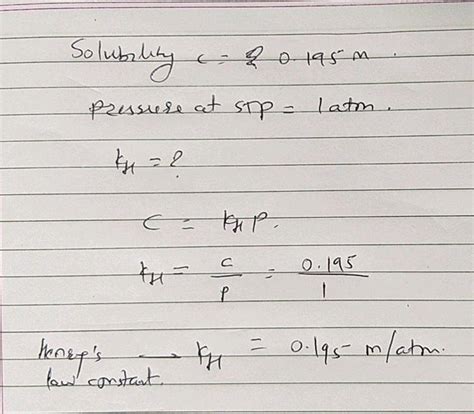 Solubility c = 0.195 m.
pressure at STP = 1 atm.
kH = ?
C = kH p.
kH = c/p = 0.195/1
Henry's law constant. → kH = 0.195 m/atm.